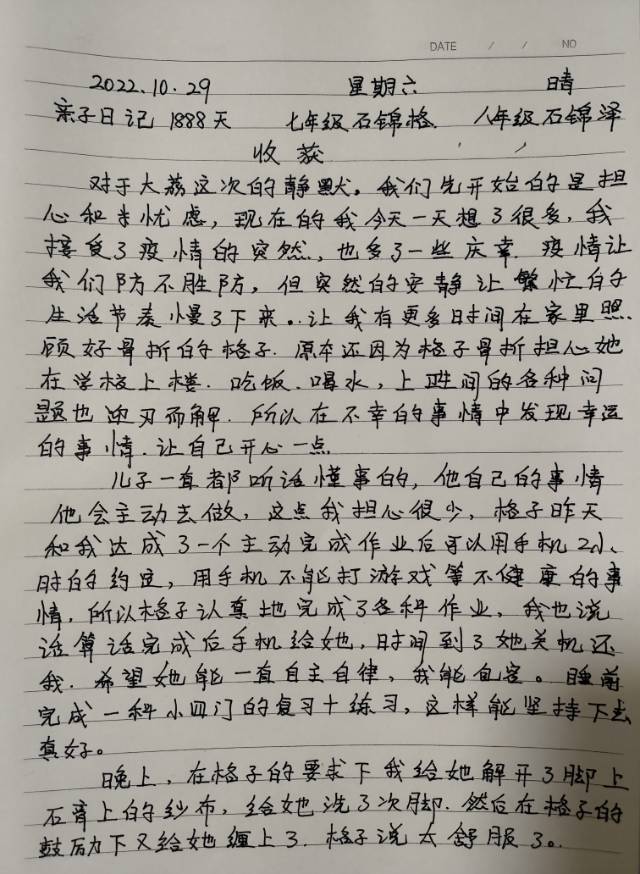 DATE / / NO
2022.10.29 星期六 晴
亲子日记 1888天 七年级石锦格 八年级石锦泽
收获
对于大荔这次的静默。我们先开始的是担
心和忧虑，现在的我今天一天想了很多，我
接受了疫情的突然，也多了一些庆幸．疫情让
我们防不胜防，但突然的安静让繁忙的
生活节奏慢了下来。让我有更多时间在家里照
顾好骨折的格子．原本还因为格子骨折担心她
在学校上楼．吃饭．喝水，上卫生间的各种问
题也迎刃而解．所以在不幸的事情中发现幸运
的事情．让自己开心一点
儿子一直都听话懂事的，他自己的事情
他会主动去做，这点我担心很少，格子昨天
和我达成了一个主动完成作业后可以用手机2小
时的约定，用手机不能打游戏等不健康的事
情，所以格子认真地完成了各科作业，我也说
话算话完成后手机给她，时间到了她关机还
我．希望她能一直自主自律，我能包容。睡前
完成一科小四门的复习十练习，这样能坚持下去
真好。
晚上，在格子的要求下我给她解开了脚上
石膏上的纱布，给她洗了次脚．然后在格子的
鼓励下又给她缠上了．格子说太舒服了。